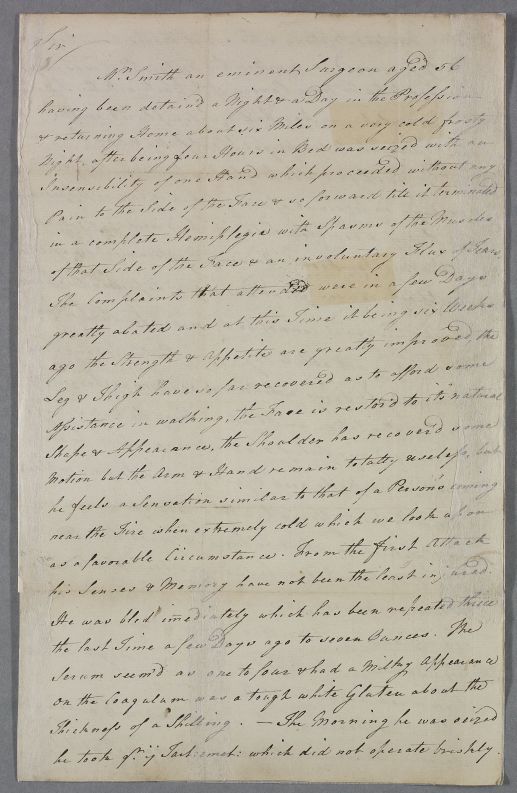 Sir
Mr. Smith an eminent Surgeon aged 56
having been detaind a Night & a Day in the Profession
& returning Home about six Miles on a very cold frosty
Night, after being four Hours in Bed was seized with an
Insensibility of one Hand which proceeded without any
Pain to the Side of the Face & so forward till it terminated
in a complete Hemiplegia with Spasms of the Muscles
of that Side of the Face & an involuntary Flux of Tears,
The Complaints that attended were in a few Days
greatly abated and at this Time it being six Weeks
ago the Strength & Appetite are greatly improved, the
Leg & Thigh have so far recovered as to afford some
Assistance in walking, the Face is restord to it's natural
Shape & Appearance, the Shoulder has recoverd some
Motion but the Arm & Hand remain totally useless, but
he feels a Sensation similar to that of a Person's coming
near the Fire when extremely cold which we look upon
as a favorable Circumstance. From the first Attack
his Senses & Memory have not been the least injured.
He was bled imediately which has been repeated thrice
the last Time a few Days ago to seven Ounces. The
Serum seem'd as one to four & had a Milky Appearance
on the Coagulum was a tough white Gluten about the
Thickness of a Shilling. — The Morning he was seized
he took gr. ij Tart: emet: which did not operate briskly.